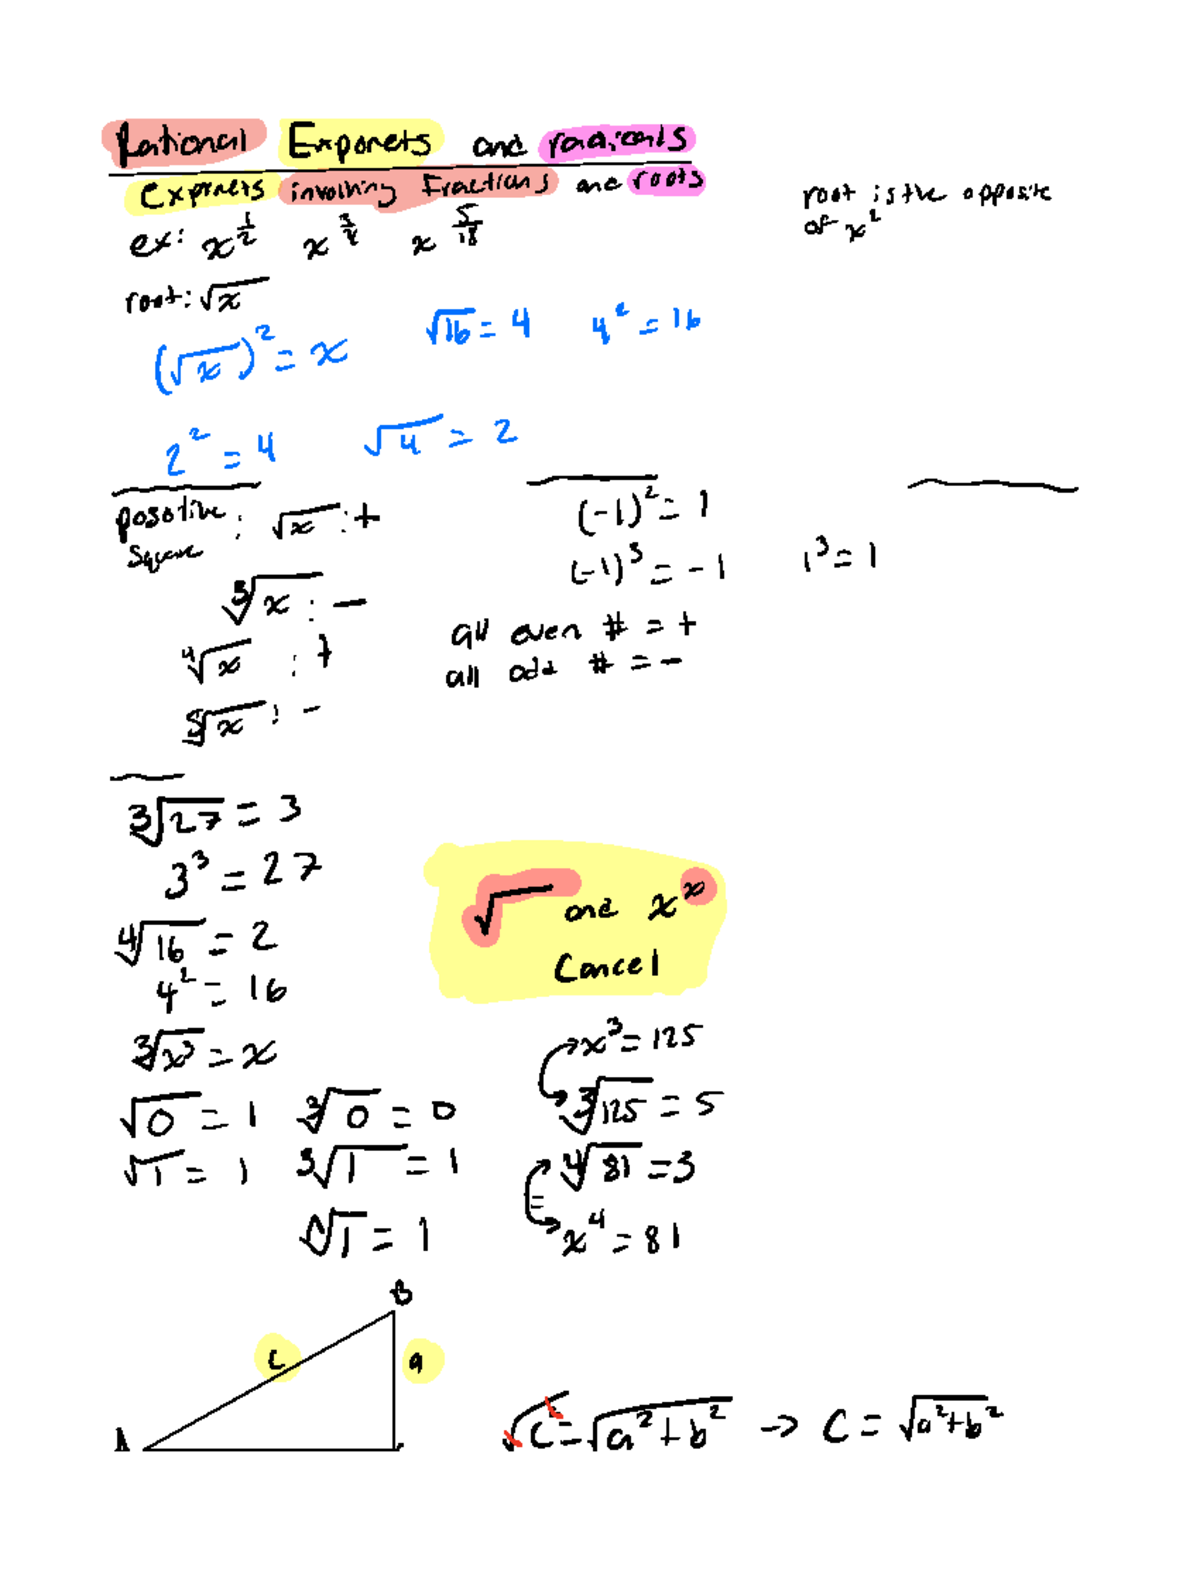 Rational Exponets and radicals
Exponets involving Fractions and roots
root is the opposite
of x²
ex: x^(1/2) x^(3/4) x^(5/18)
root: √x
(√x)² = x √16 = 4 4² = 16
2² = 4 √4 = 2
posotive
square : √x : +
³√x : −
⁴√x : +
⁵√x : −
(-1)² = 1
(-1)³ = -1 1³ = 1
all even # = +
all odd # = −
³√27 = 3
3³ = 27
⁴√16 = 2
4² = 16
³√x³ = x
√0 = 1 ³√0 = 0
√1 = 1 ³√1 = 1
ⁿ√1 = 1
√ and x^x
Cancel
x³ = 125
³√125 = 5
⁴√81 = 3
=
x⁴ = 81
B
c a
A
√c² = √a²+b² → C = √a²+b²